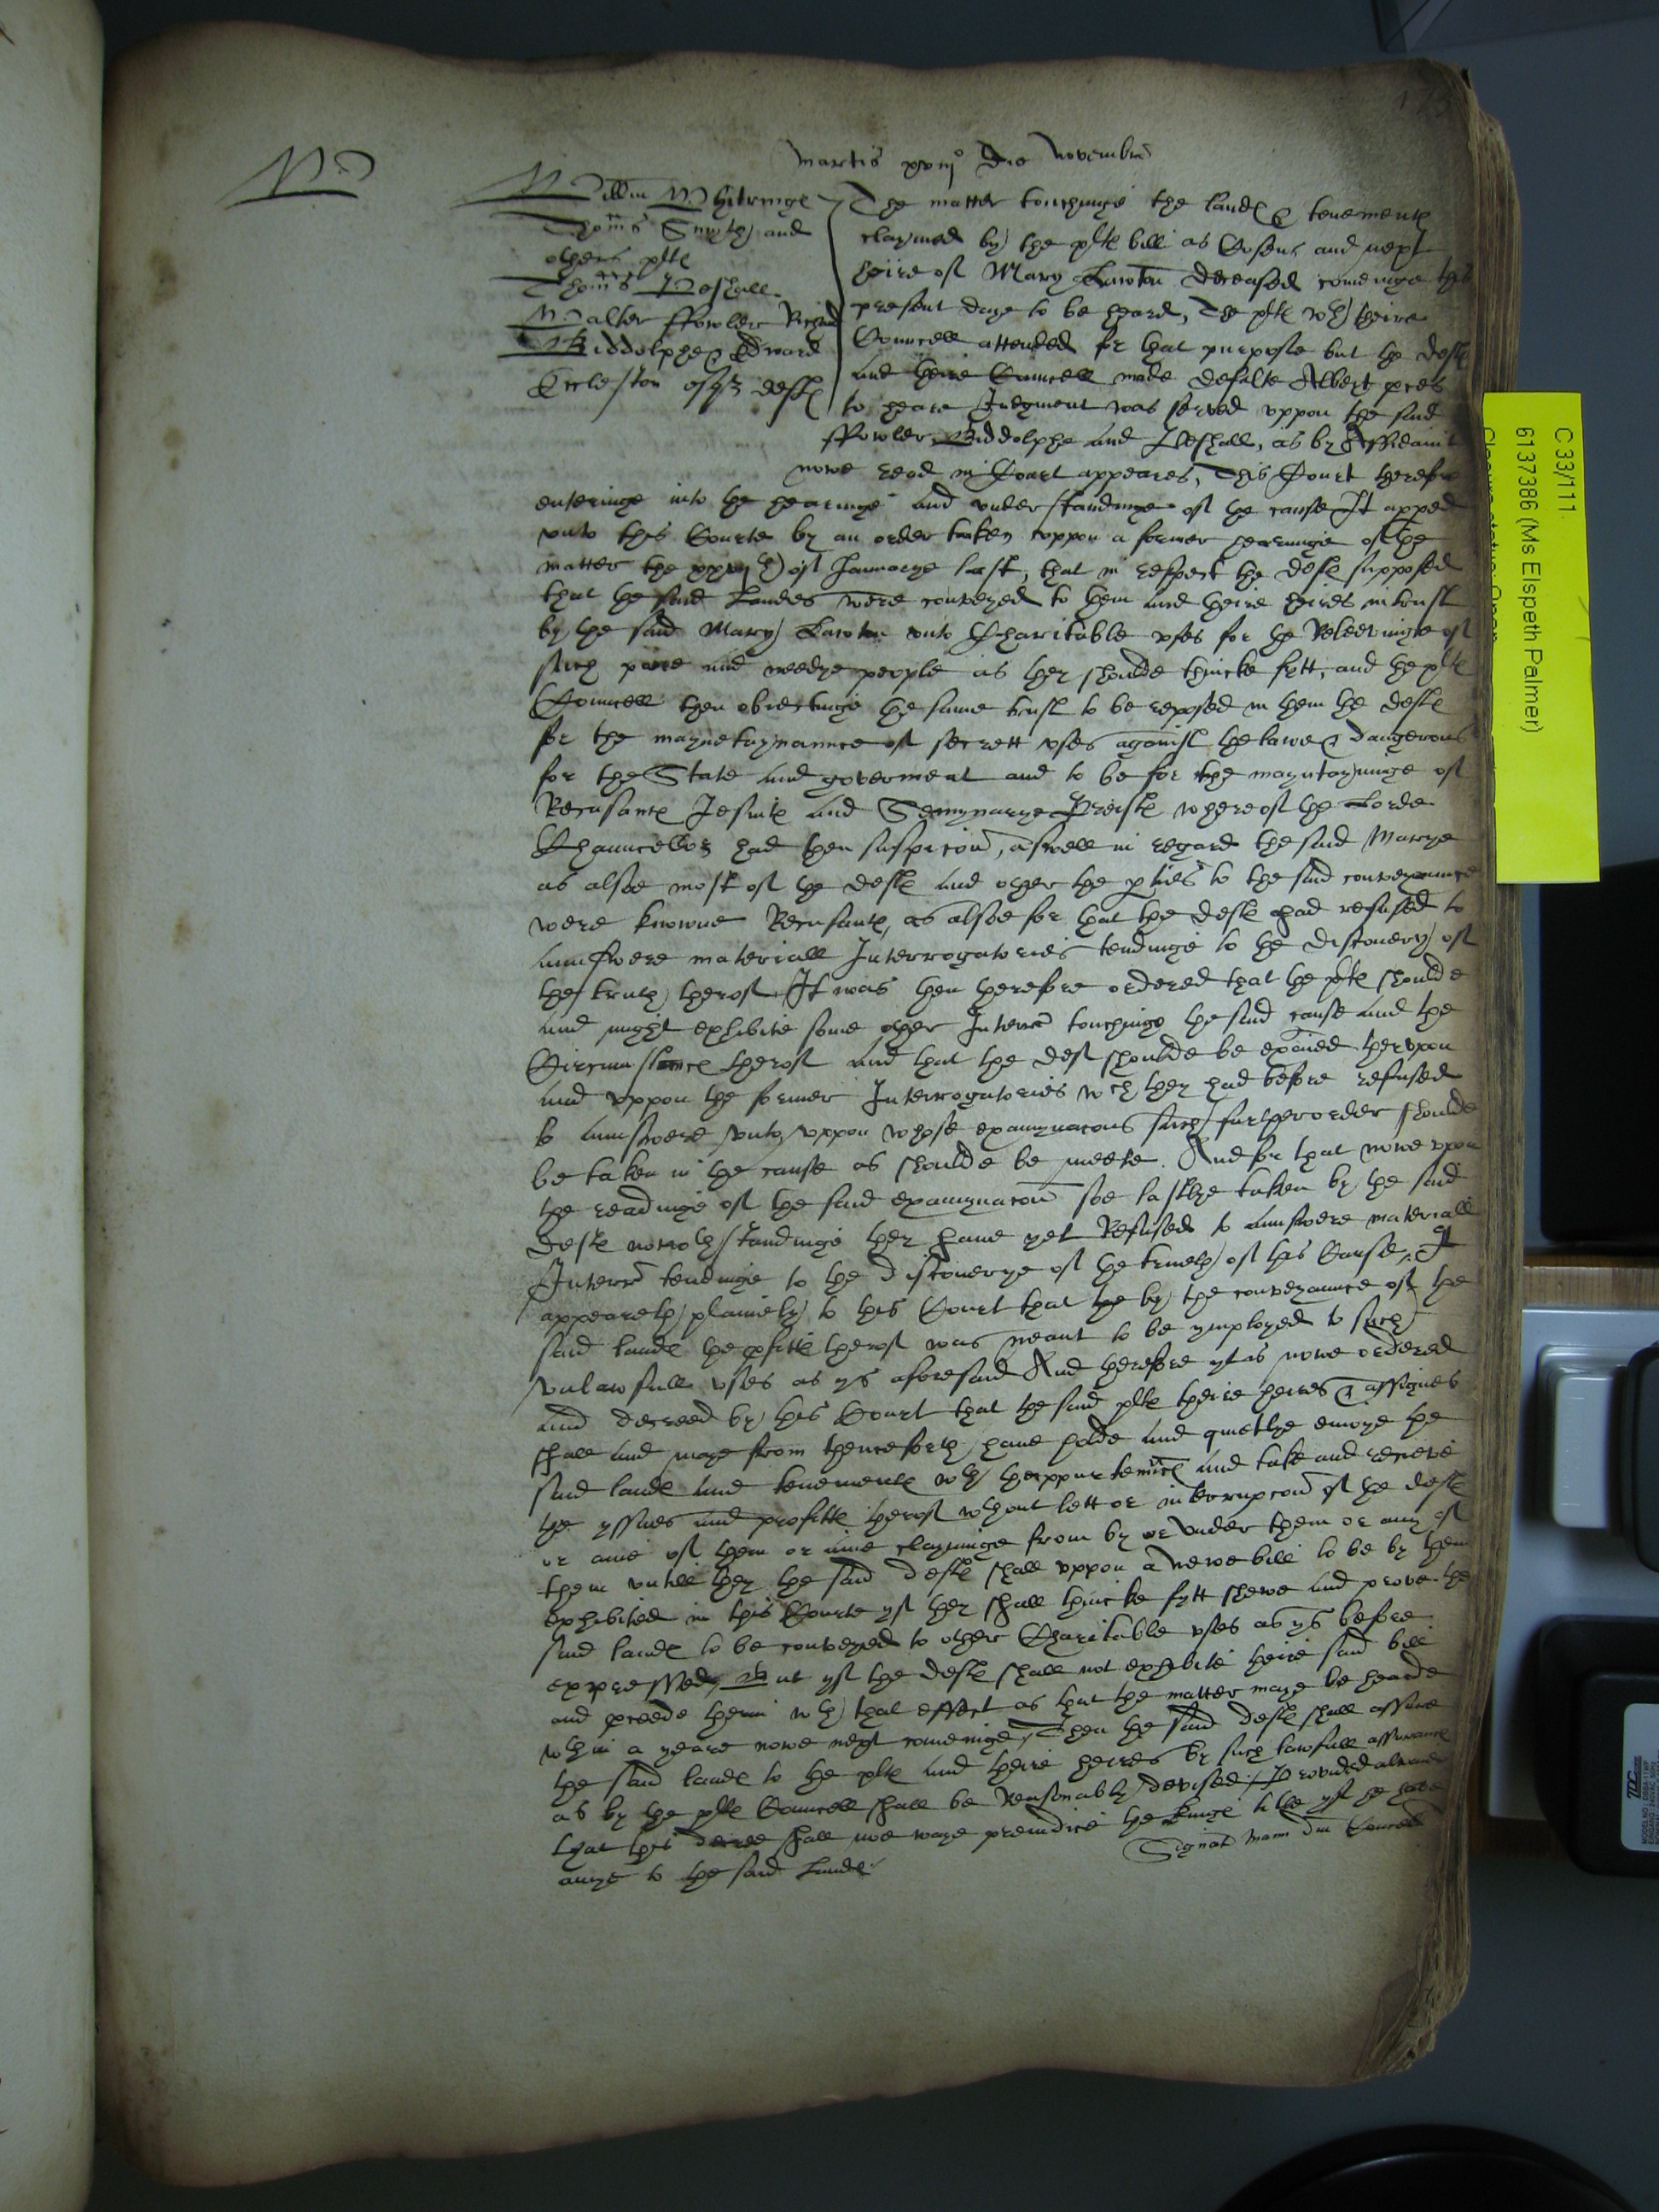 173
Martis xviijº Die Novembris
W
Willm Whitringe
Thoms Smyth and
others plts
Thoms Peshall
Walter ffowler Richard
Biddolphe & Edward
Eccleston esqrs defts
The matter touchinge the landes & tenements
claymed by the plts bill as Cosens and next
heire of Mary Lawton deceased cominge this
present daye to be heard, The plts wth theire
Councell attended for that purpose but the defts
and theire Councell made defalte Albeyt proces
to heare Judgment was served uppon the said
ffowler, Biddolphe and Peshall, as by Affidavit
nowe read in Court appeares, This Court therefore
enteringe into the hearinge and understandinge of the cause It apped
unto this Courte by an order taken uppon a former hearinge of the
matter the of Januarye last, that in respect the defts supposed
that the said Landes were conveyed to them and theire heires in trust
by the said Mary Lawton unto Charitable uses for the Releevinge of
such pore and needye people as they shoulde thincke fytt, and the plts
Councell then obiectinge the same trust to be reposed in them the defts
for the maynetaynaunce of secrett uses against the lawe & dangerous
for the State and goverment and to be for the mayntayninge of
Recusants Jesuits and Semynarye Preists whereof the Lorde
Chauncellor had then suspicion, aswell in regard the said Marye
as alsoe most of the defts and other the pties to the said conveyaunce
were knowne Recusants, as alsoe for that the defts had refused to
aunswere materiall Interrogatories tendinge to the discovery of
the truth therof It was then therefore ordered that the plts shoulde
and might exhibite some other Interr touchinge the said cause and the
Circumstance therof and that the defts shoulde be exaied therupon
and uppon the former Interrogatories wch they had before refused
to aunswere unto, uppon whose examynacons such further order shoulde
be taken in the cause as shoulde be meete. And for that nowe uppon
the readinge of the said examynacon soe lastlye taken by the said
defts notwthstandinge they have yet Refused to aunswere materiall
Interr tendinge to the discoverye of the trueth of this Cause, It
appeareth plainely to this Court that the by the conveyaunce of the
said lands the pfitts therof was meant to be ymployed to such
unlawfull uses as ys aforesaid And therefore yt as nowe ordered
and decreed by this Court that the said plts theire heires & assignes
shall and maye from thenceforth have holde and quietlye enioye the
said lands and tenements wth thappurtenncs and take and receive
the yssues and profitts therof wthout lett or interrupcon of the defts
or anie of them or anie clayminge from by or under them or any of
them untill they the said defts shall uppon a newe bill to be by them
exhibited in this Courte yf they shall thincke fytt shewe and prove the
said lands to be conveyed to other Charitable uses as ys before
expressed, But yf the defts shall not exhibite theire said bill
and pceede therin wth that effect as that the matter maye be hearde
wthin a yeare nowe next cominge, Then the said defts shall assure
the said lands to the plts and theire heires by such lawfull assurance
as by the plts Councell shall be Reasonably devised, Provided alwaies
that this decree shall noe waye preiudice the Kings title yf he have
anye to the said Lands
Signat Manu Dni Cancell
C 33/111
6137386 (Ms Elspeth Palmer)